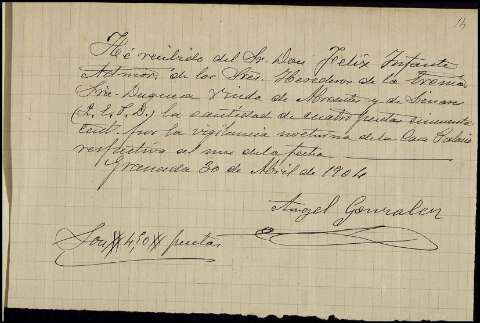 14
He recibido del Sr. Don Felix Infante
Admor. de los Sres. Herederos de la Excma
Sra. Duquesa Viuda de Abrantes y de Linares
(Q.E.S.D.) la cantidad de cuatro pesetas cincuenta
cent. por la vigilancia nocturna de la Casa Palacio
respectivo al mes de la fecha
Granada 30 de Abril de 1904
Angel Gonzalez
Son # 4,50 # pesetas